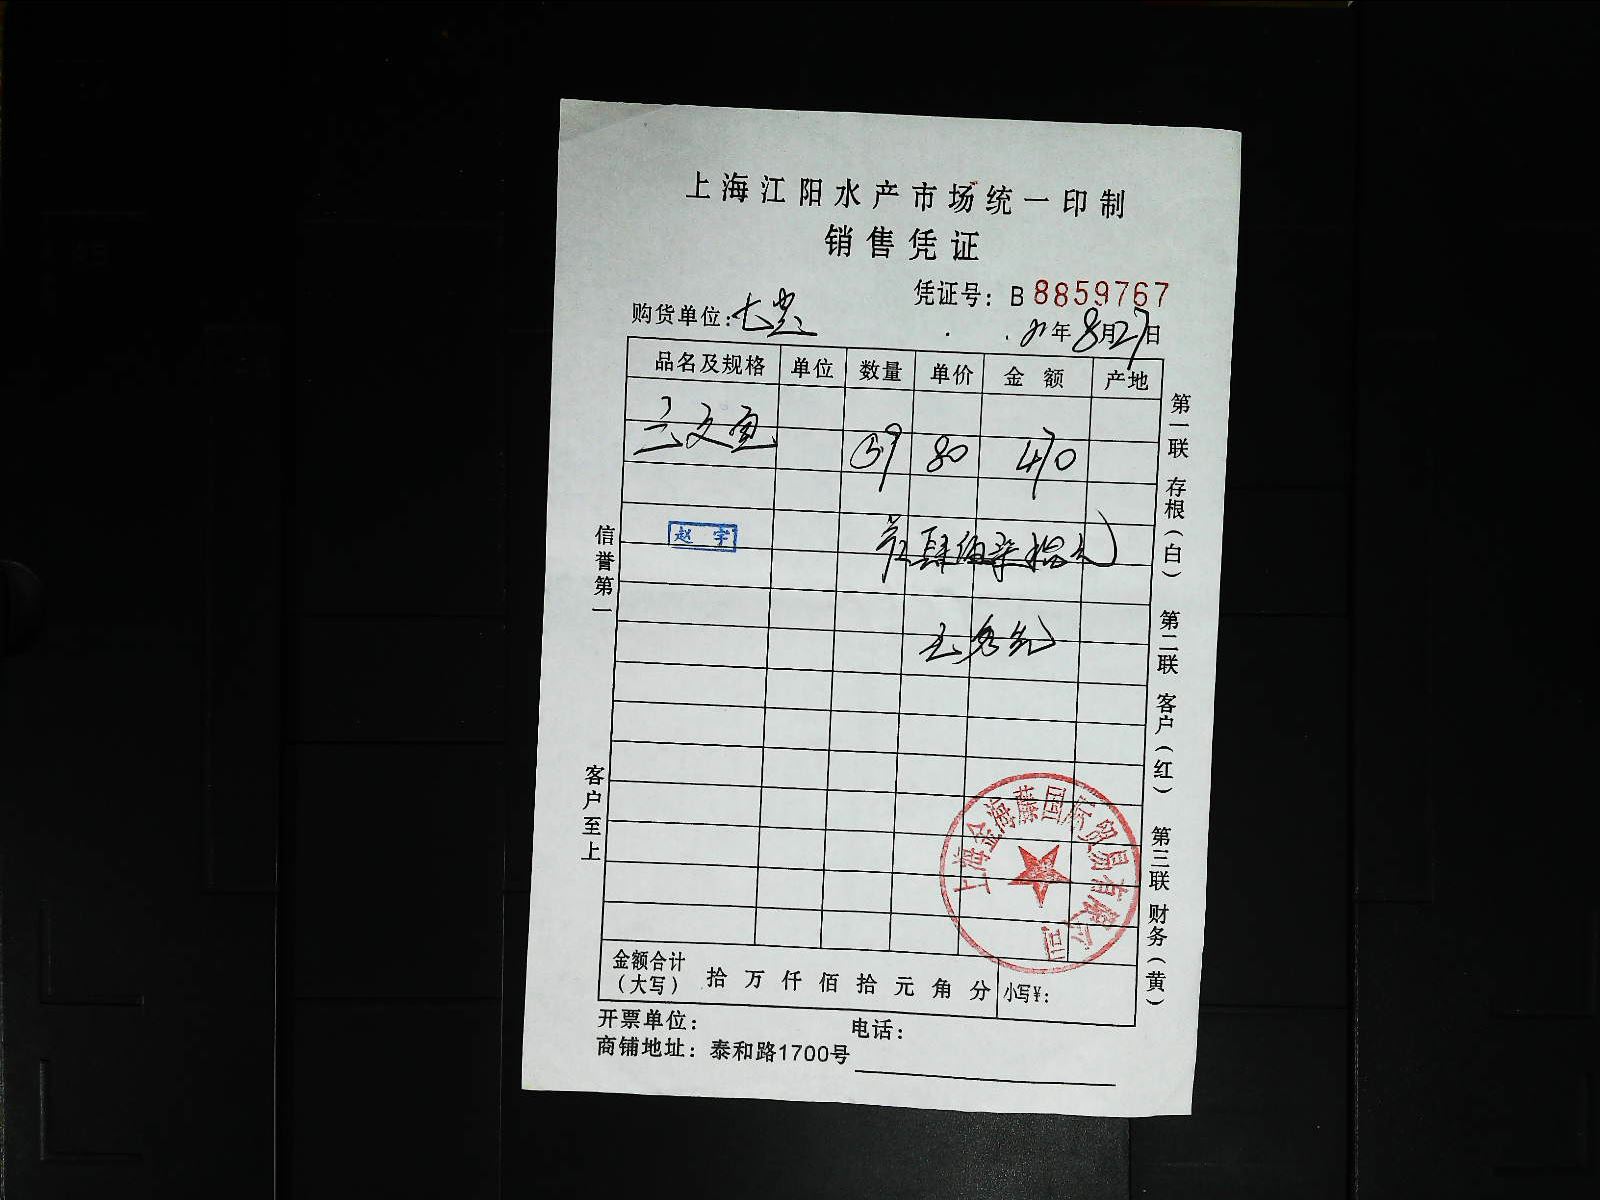 上海江阳水产市场统一印制
销售凭证
凭证号: B 8859767
购货单位:
年8月27日
品名及规格 单位 数量 单价 金额 产地
三文鱼 80 470
肆佰柒拾元
赵宇
信誉第一
客户至上
第一联 存根(白)
第二联 客户(红)
第三联 财务(黄)
上海金海藤国际贸易有限公司
金额合计(大写) 拾 万 仟 佰 拾 元 角 分 小写¥:
开票单位: 电话:
商铺地址: 泰和路1700号